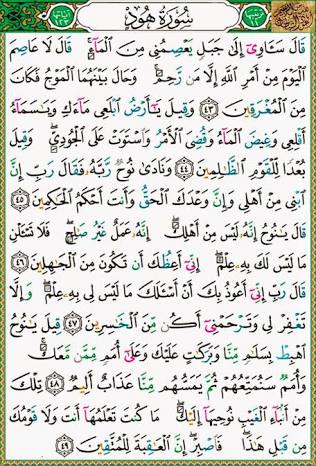 سُورَةُ هُودٍ
قَالَ سَـَٔاوِىٓ إِلَىٰ جَبَلٍ يَعْصِمُنِى مِنَ ٱلْمَآءِ ۚ قَالَ لَا عَاصِمَ
ٱلْيَوْمَ مِنْ أَمْرِ ٱللَّهِ إِلَّا مَن رَّحِمَ ۚ وَحَالَ بَيْنَهُمَا ٱلْمَوْجُ فَكَانَ
مِنَ ٱلْمُغْرَقِينَ ٤٣ وَقِيلَ يَـٰٓأَرْضُ ٱبْلَعِى مَآءَكِ وَيَـٰسَمَآءُ
أَقْلِعِى وَغِيضَ ٱلْمَآءُ وَقُضِىَ ٱلْأَمْرُ وَٱسْتَوَتْ عَلَى ٱلْجُودِىِّ ۖ وَقِيلَ
بُعْدًا لِّلْقَوْمِ ٱلظَّـٰلِمِينَ ٤٤ وَنَادَىٰ نُوحٌ رَّبَّهُۥ فَقَالَ رَبِّ إِنَّ
ٱبْنِى مِنْ أَهْلِى وَإِنَّ وَعْدَكَ ٱلْحَقُّ وَأَنتَ أَحْكَمُ ٱلْحَـٰكِمِينَ ٤٥
قَالَ يَـٰنُوحُ إِنَّهُۥ لَيْسَ مِنْ أَهْلِكَ ۖ إِنَّهُۥ عَمَلٌ غَيْرُ صَـٰلِحٍ ۖ فَلَا تَسْـَٔلْنِ
مَا لَيْسَ لَكَ بِهِۦ عِلْمٌ ۖ إِنِّىٓ أَعِظُكَ أَن تَكُونَ مِنَ ٱلْجَـٰهِلِينَ ٤٦
قَالَ رَبِّ إِنِّىٓ أَعُوذُ بِكَ أَنْ أَسْـَٔلَكَ مَا لَيْسَ لِى بِهِۦ عِلْمٌ ۖ وَإِلَّا
تَغْفِرْ لِى وَتَرْحَمْنِىٓ أَكُن مِّنَ ٱلْخَـٰسِرِينَ ٤٧ قِيلَ يَـٰنُوحُ
ٱهْبِطْ بِسَلَـٰمٍ مِّنَّا وَبَرَكَـٰتٍ عَلَيْكَ وَعَلَىٰٓ أُمَمٍ مِّمَّن مَّعَكَ ۚ
وَأُمَمٌ سَنُمَتِّعُهُمْ ثُمَّ يَمَسُّهُم مِّنَّا عَذَابٌ أَلِيمٌ ٤٨ تِلْكَ
مِنْ أَنۢبَآءِ ٱلْغَيْبِ نُوحِيهَآ إِلَيْكَ ۖ مَا كُنتَ تَعْلَمُهَآ أَنتَ وَلَا قَوْمُكَ
مِن قَبْلِ هَـٰذَا ۖ فَٱصْبِرْ ۖ إِنَّ ٱلْعَـٰقِبَةَ لِلْمُتَّقِينَ ٤٩